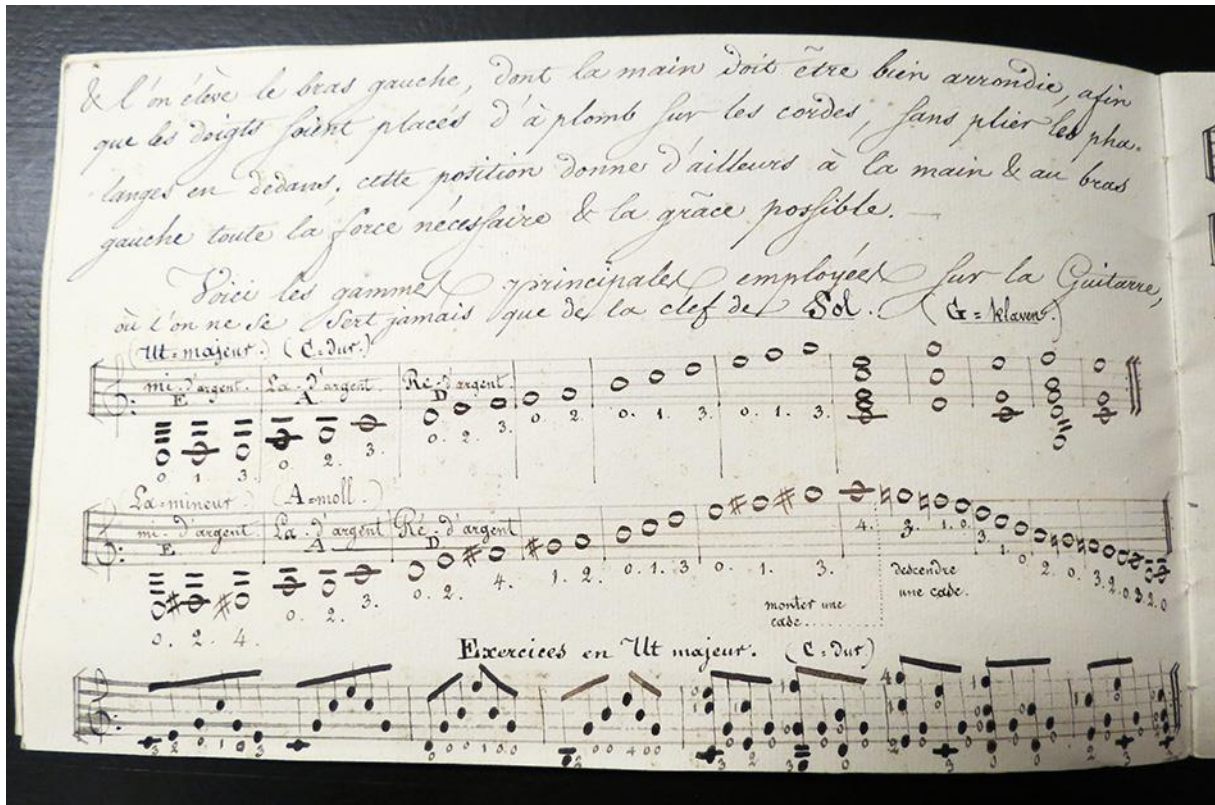 & l'on élève le bras gauche, dont la main doit être bien arrondie, afin
que les doigts soient placés d'à plomb sur les cordes, sans plier les pha-
langes en dedans; cette position donne d'ailleurs à la main & au bras
gauche toute la force nécessaire & la grâce possible. —
Voici les gammes principales employées sur la Guitarre,
où l'on ne se sert jamais que de la clef de Sol. (G = klaven.)
(Ut = majeur.) (C = dur.)
mi - d'argent. La - d'argent. Ré - d'argent.
E A D
0. 1. 3. 0. 2. 3. 0. 2. 3. 0. 2. 0. 1. 3. 0. 1. 3.
(La = mineur.) (A = moll.)
mi - d'argent La - d'argent Ré - d'argent
E A D
0. 2. 4. 0. 2. 3. 0. 2. 4. 1. 2. 0. 1. 3 0. 1. 3. 4. 3. 1. 0. 3 1. 0. 2. 0. 3. 2. 0. 3. 2. 0
monter une
case
descendre
une case.
Exercices en Ut majeur. (C = dur)